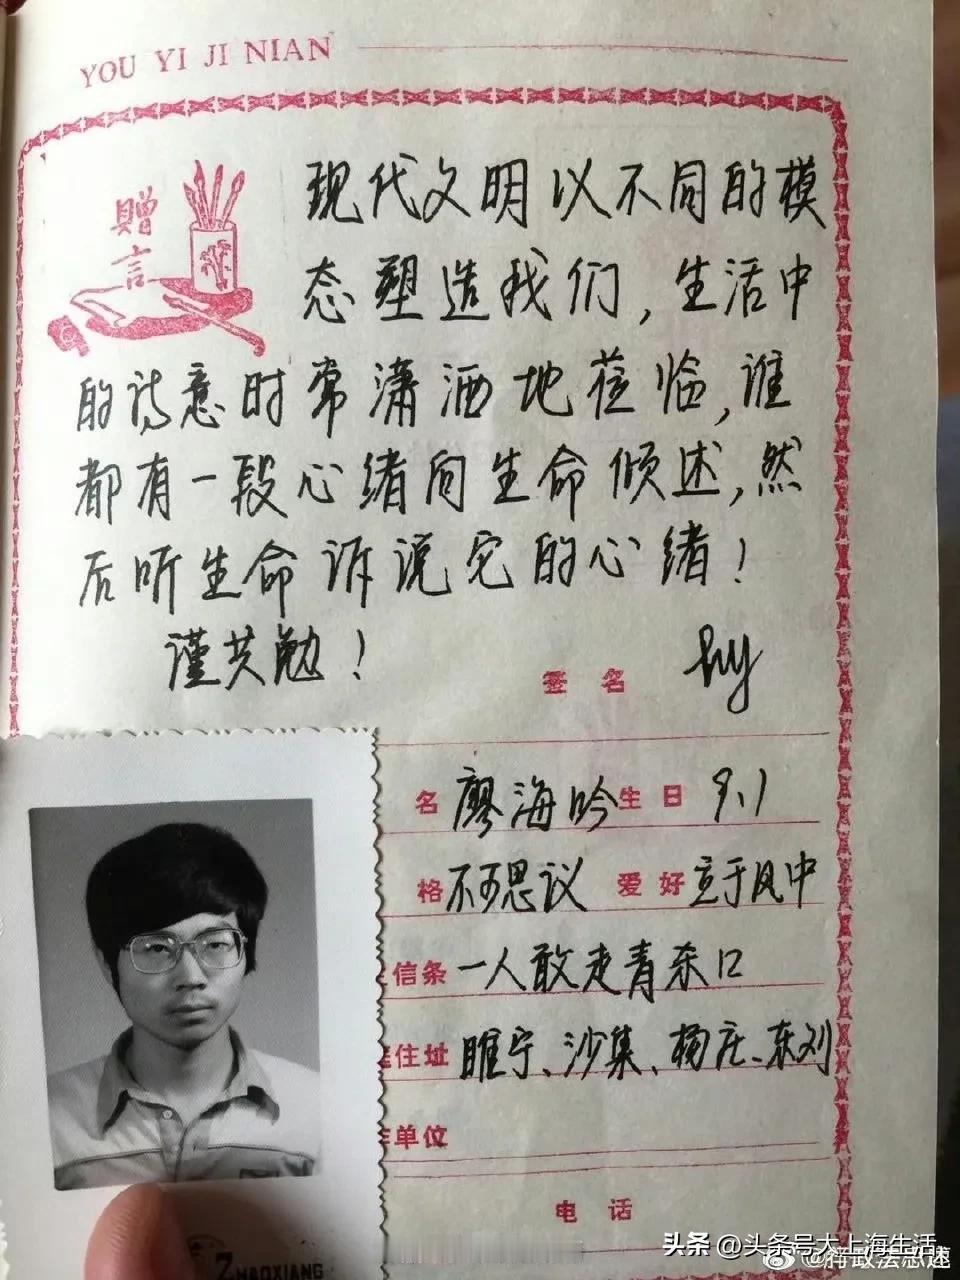 YOU YI JI NIAN
赠言
现代文明以不同的模
态塑造我们，生活中
的诗意时常潇洒地莅临，谁
都有一段心绪向生命倾述，然
后听生命诉说它的心绪！
谨共勉！
签名 hy
名 廖海吟 生日 9.1
格 不可思议 爱好 立于风中
信条 一人敢走青杀口
住址 睢宁、沙集、杨庄、东刘
单位
电话
ZHAOXIANG
头条 @头条号大上海生活
@行政法忽迷